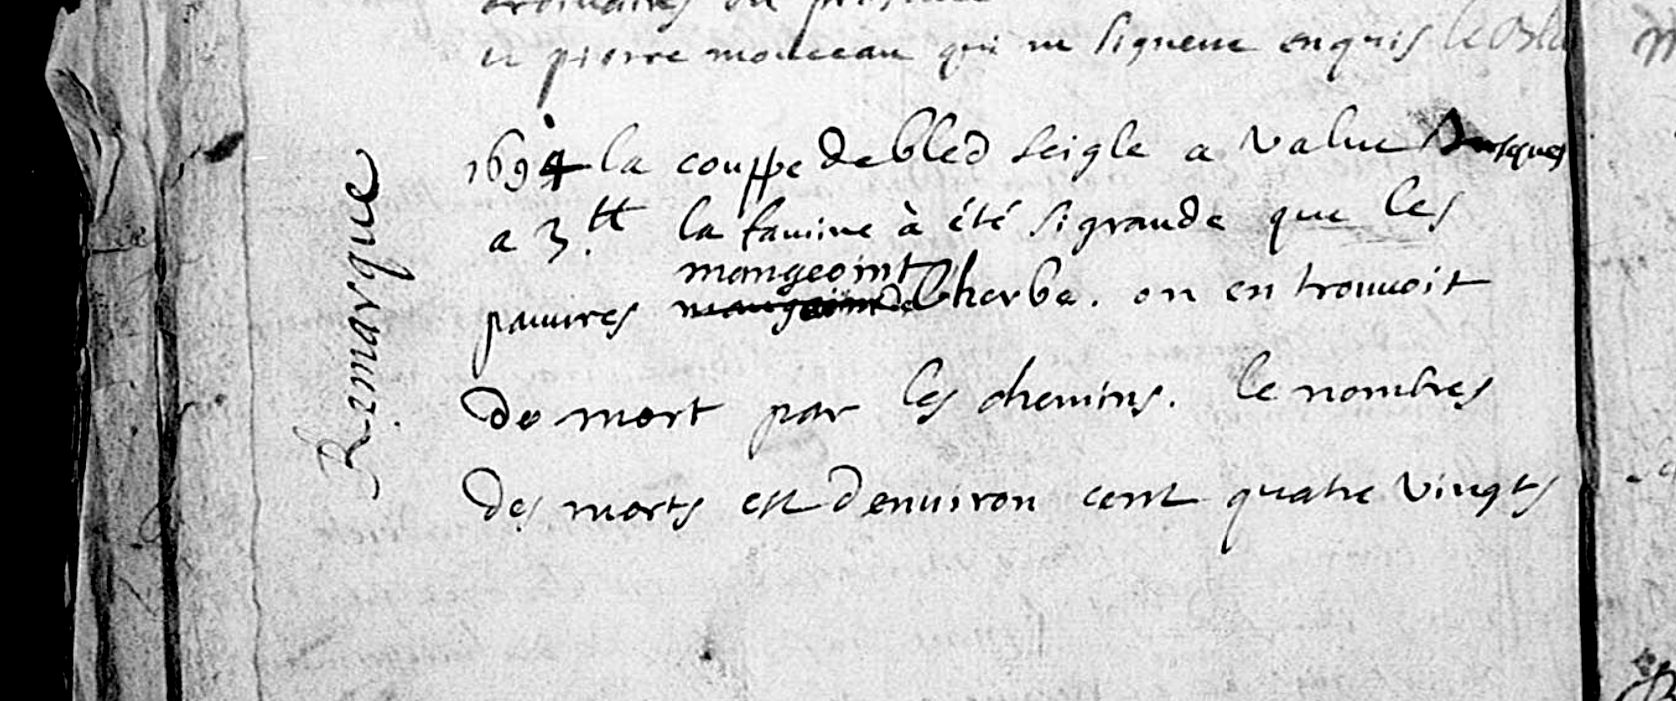 et pierre mouceau qui ne signent enquis
Remarque
1694 la couppe de bled seigle a value Jusques
a 3.tt la famine à été si grande que les
mangeoint
pauvres l'herbe. on en trouvoit
de mort par les chemins. le nombres
des morts est denuiron cent quatre vingts